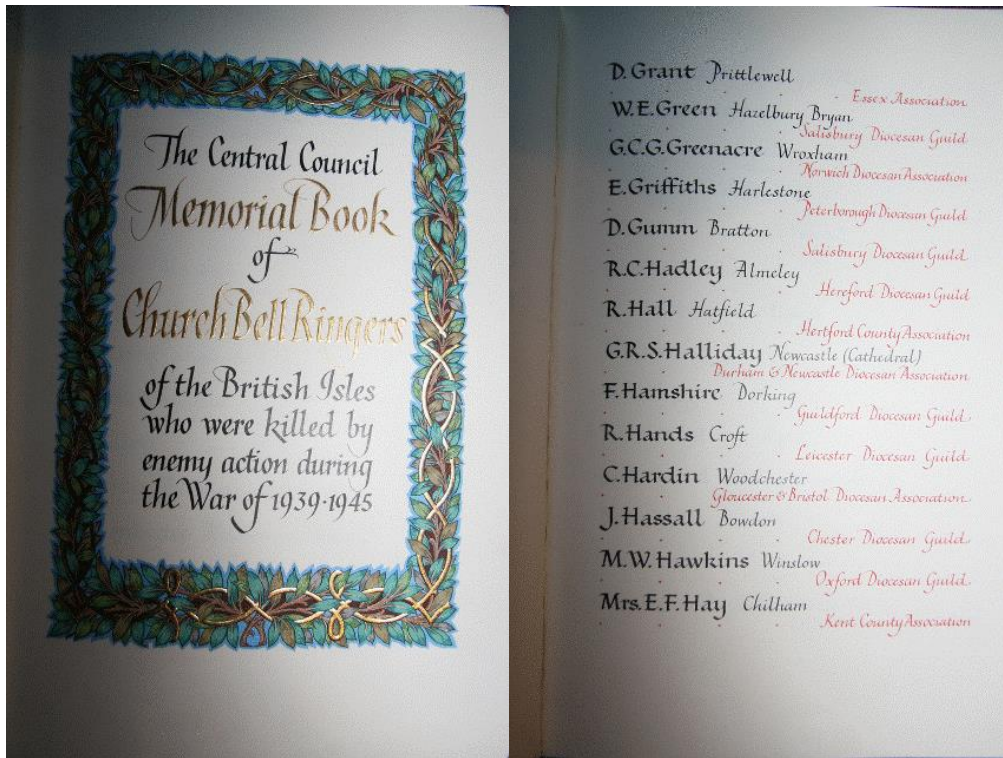 The Central Council
Memorial Book
of
Church Bell Ringers
of the British Isles
who were killed by
enemy action during
the War of 1939·1945
D. Grant Prittlewell
Essex Association
W.E. Green Hazelbury Bryan
Salisbury Diocesan Guild
G.C.G. Greenacre Wroxham
Norwich Diocesan Association
E. Griffiths Harlestone
Peterborough Diocesan Guild
D. Gumm Bratton
Salisbury Diocesan Guild
R.C. Hadley Almeley
Hereford Diocesan Guild
R. Hall Hatfield
Hertford County Association
G.R.S. Halliday Newcastle (Cathedral)
Durham & Newcastle Diocesan Association
F. Hamshire Dorking
Guildford Diocesan Guild
R. Hands Croft
Leicester Diocesan Guild
C. Hardin Woodchester
Gloucester & Bristol Diocesan Association
J. Hassall Bowdon
Chester Diocesan Guild
M.W. Hawkins Winslow
Oxford Diocesan Guild
Mrs. E.F. Hay Chilham
Kent County Association